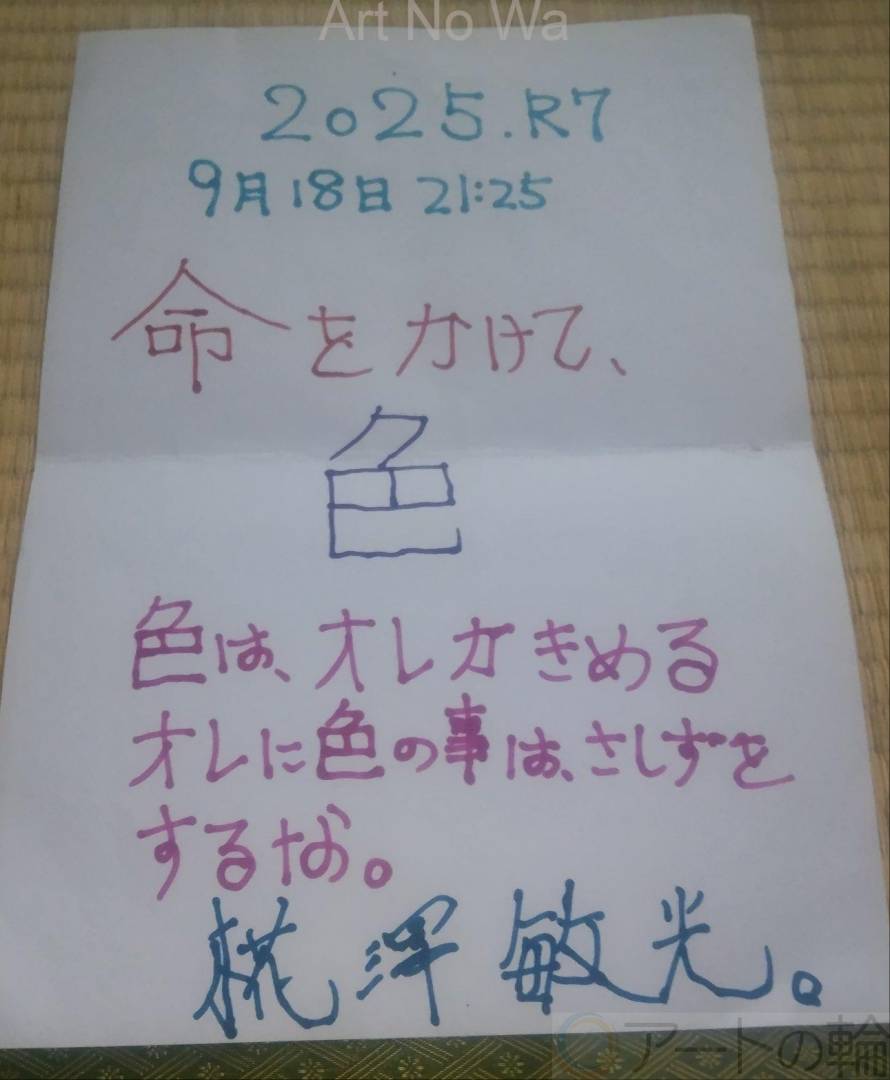 Art No Wa
2025.R7
9月18日 21:25
命をかけて、
色
色は、オレがきめる
オレに色の事は、さしずを
するな。
糀澤敏光。
アートの輪